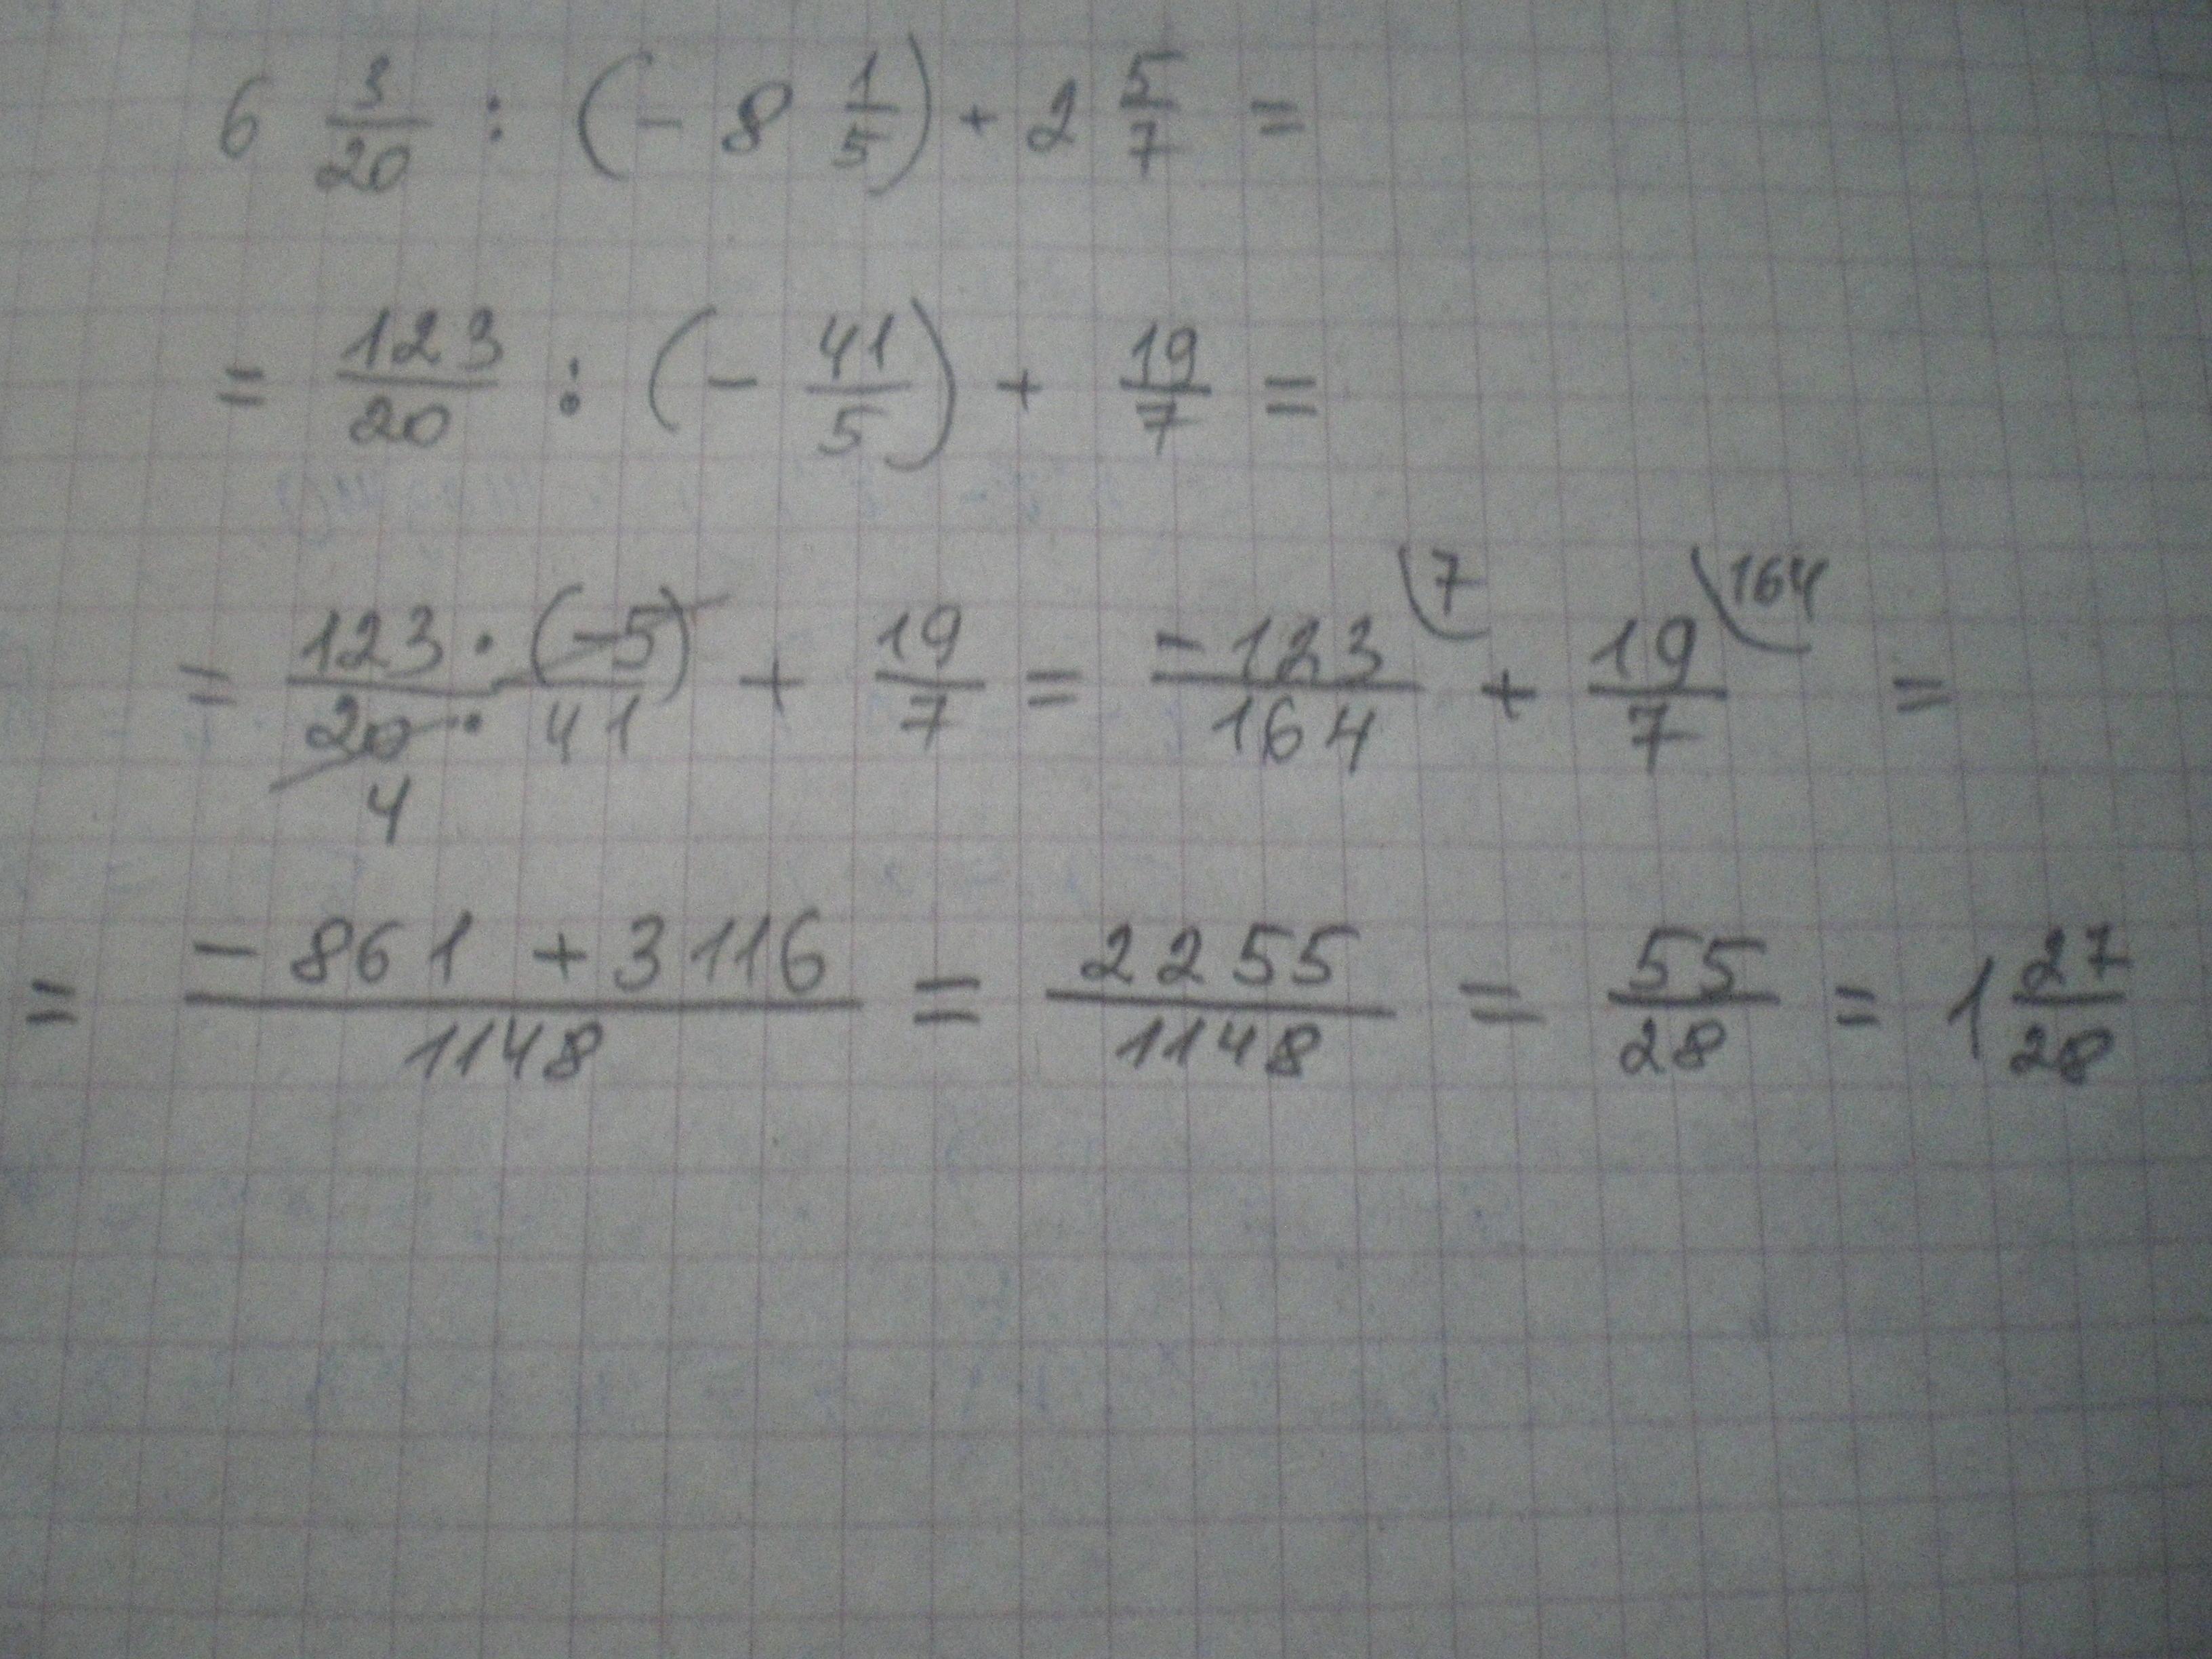 6 3/20 : (- 8 1/5) + 2 5/7 =
= 123/20 : (- 41/5) + 19/7 =
= 123 · (-5)/20 · 41 + 19/7 = -123/164 \7 + 19/7 \164 =
4
= - 861 + 3116/1148 = 2255/1148 = 55/28 = 1 27/28